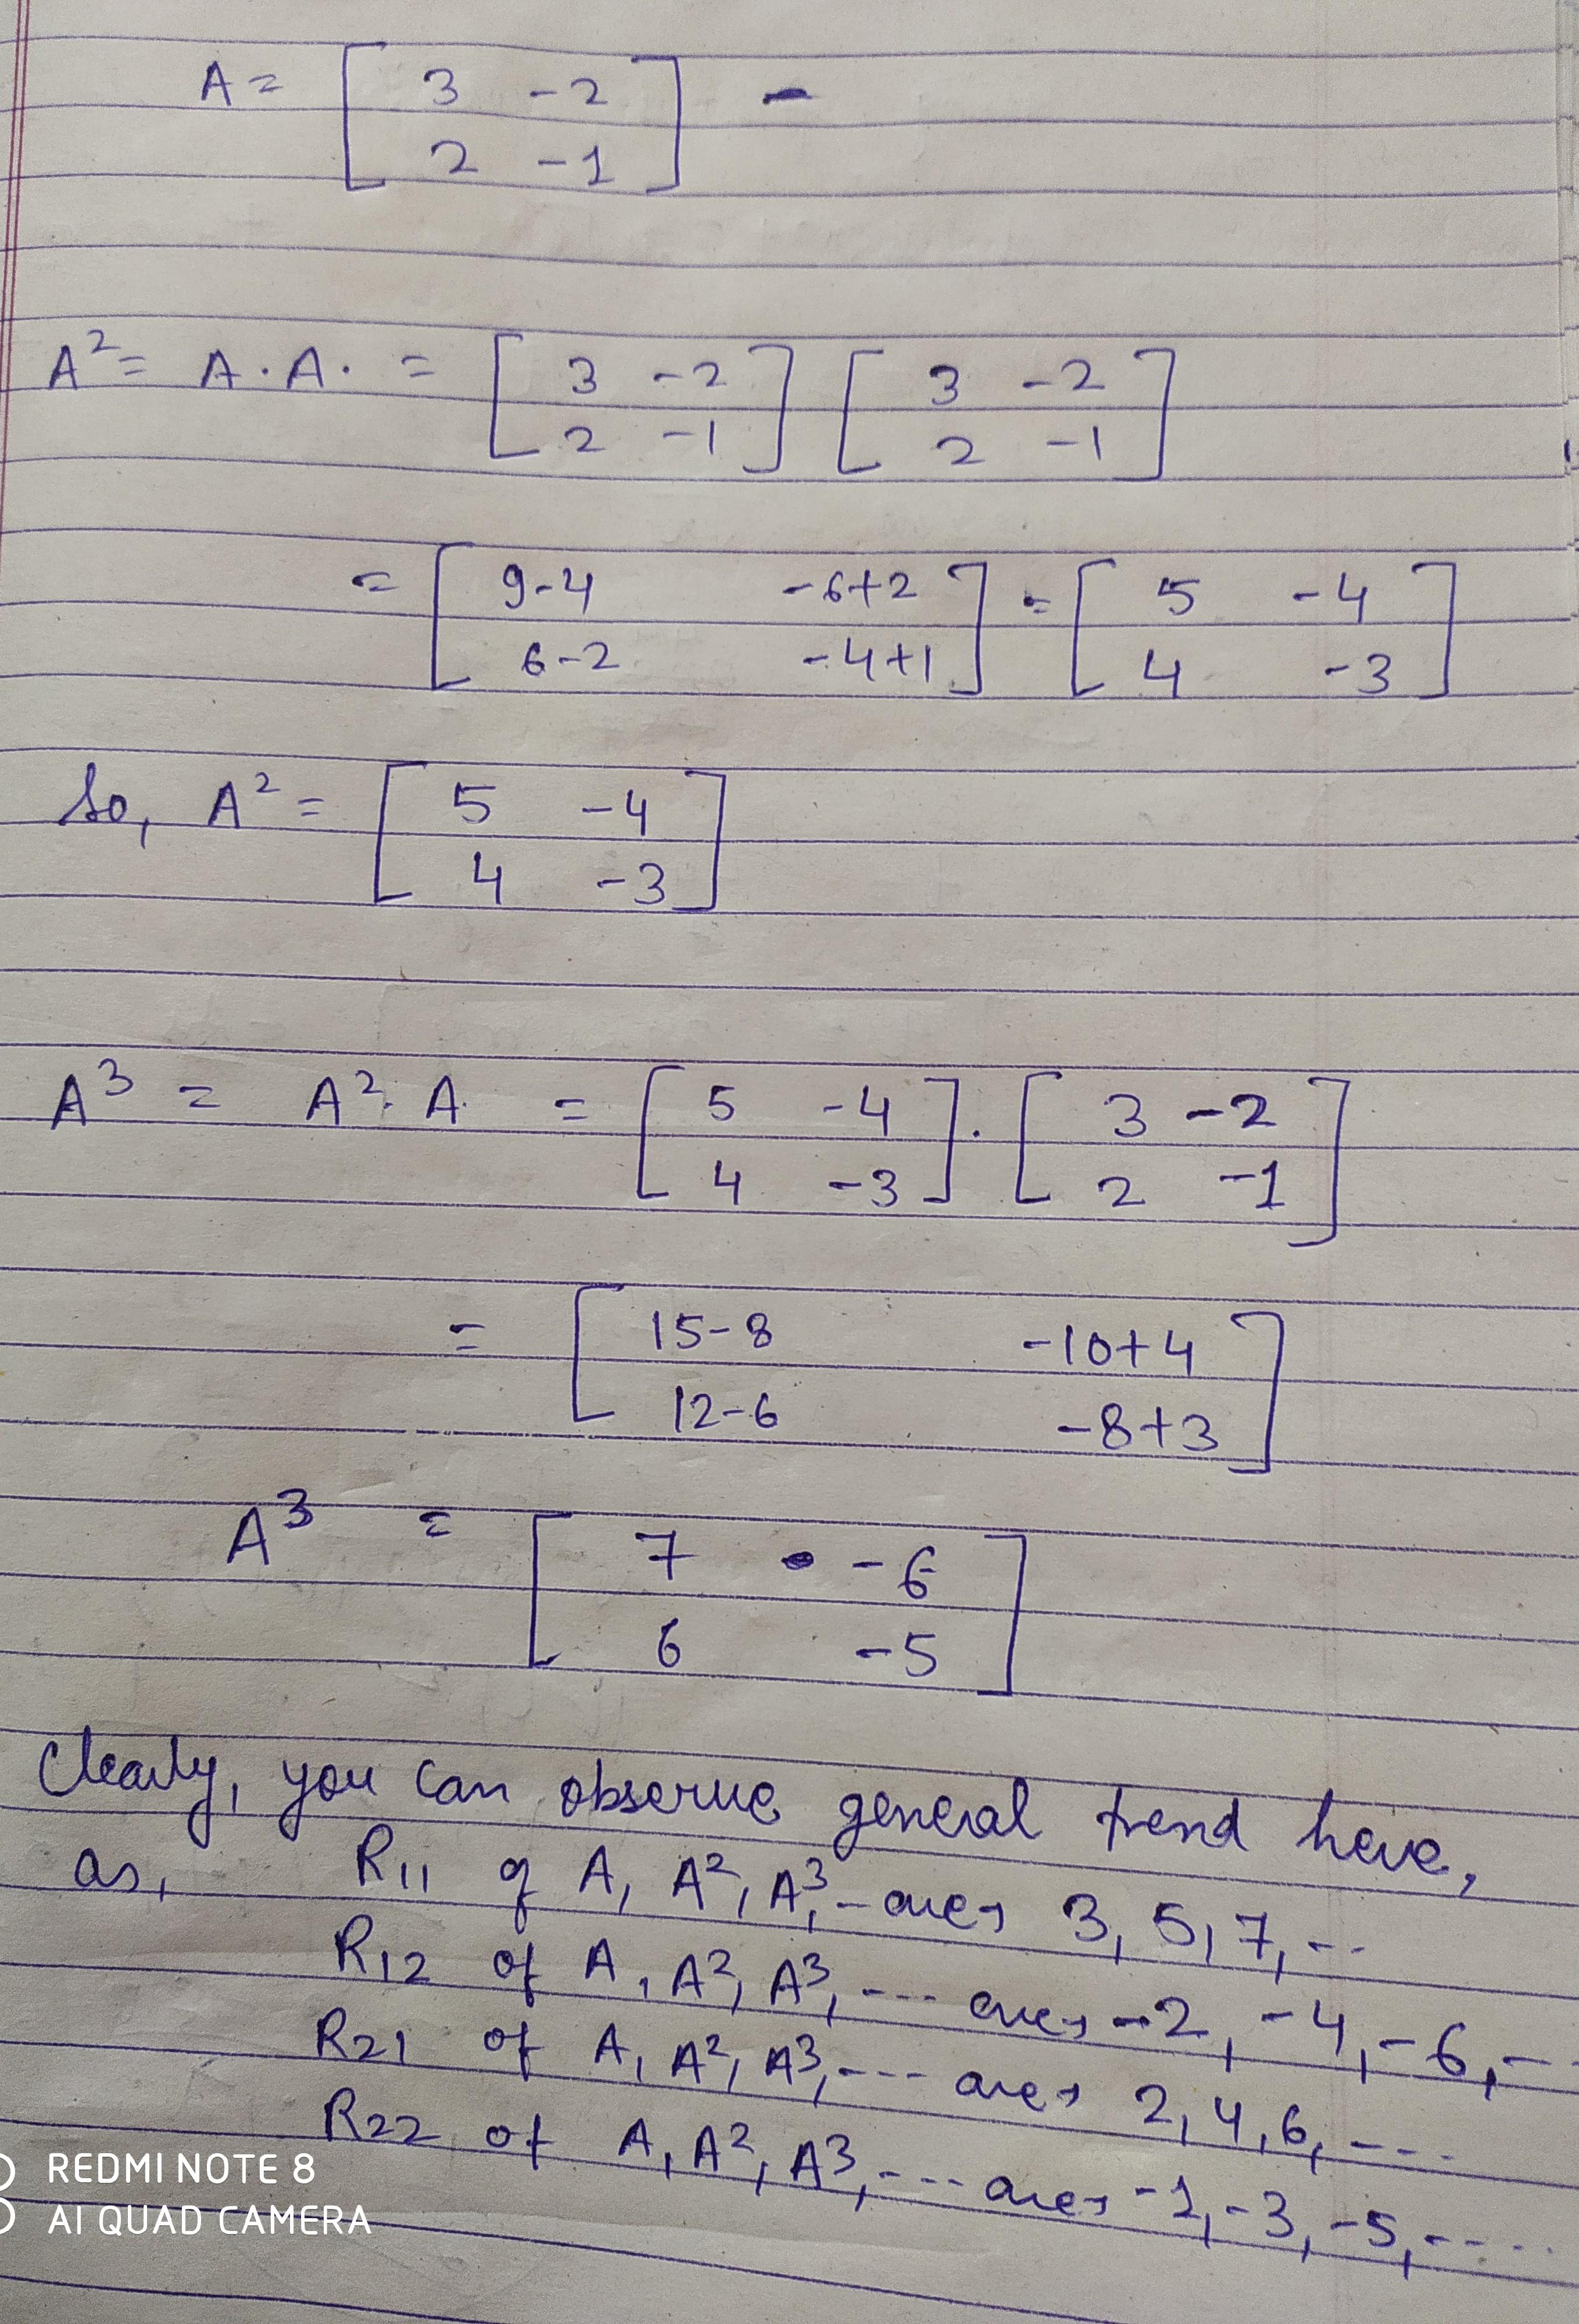 A = [ 3 -2
2 -1 ] -
A² = A . A . = [ 3 -2 ] [ 3 -2 ]
[ 2 -1 ] [ 2 -1 ]
= [ 9-4 -6+2 ] = [ 5 -4 ]
[ 6-2 -4+1 ] [ 4 -3 ]
So, A² = [ 5 -4
4 -3 ]
A³ = A² . A . = [ 5 -4 ] . [ 3 -2 ]
[ 4 -3 ] [ 2 -1 ]
= [ 15-8 -10+4
12-6 -8+3 ]
A³ = [ 7 -6
6 -5 ]
Clearly, you can observe general trend here,
as, R11 of A, A², A³, - are → 3, 5, 7, --
R12 of A, A², A³, --- are → -2, -4, -6, --
R21 of A, A², A³, --- are → 2, 4, 6, ---
R22 of A, A², A³, --- are → -1, -3, -5, ----
REDMI NOTE 8
AI QUAD CAMERA